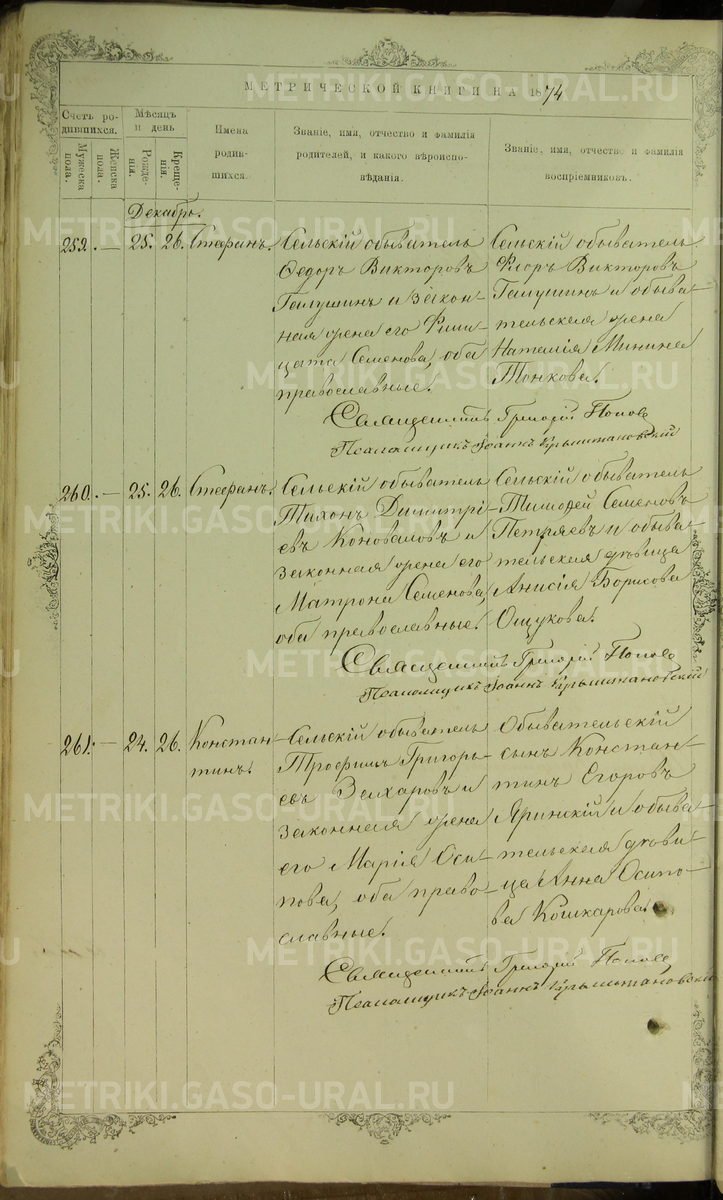 МЕТРИЧЕСКОЙ КНИГИ НА 1874
Счетъ ро-
дившихся.
Мужеска
пола.
Женска
пола.
Мѣсяцъ
и день
Рожде-
нія.
Креще-
нія.
Имена
родив-
шихся.
Званіе, имя, отчество и фамилія
родителей, и какого вѣроиспо-
вѣданія.
Званіе, имя, отчество и фамилія
воспріемниковъ.
Декабрь.
259. — 25. 26. Стефанъ.
Сельскій обыватель
Ѳедоръ Викторовъ
Галушинъ и закон-
ная жена его Фили-
цата Семенова, оба
православные.
Сельскій обыватель
Флоръ Викторовъ
Галушинъ и обыва-
тельская жена
Наталія Минина
Тонкова.
Священникъ Григорій Поповъ
Псаломщикъ Іоаннъ Крыжановскій
260. — 25. 26. Стефанъ.
Сельскій обыватель
Тихонъ Димитрі-
евъ Коноваловъ и
законная жена его
Матрона Семенова,
оба православные.
Сельскій обыватель
Тимоѳей Семеновъ
Петряевъ и обыва-
тельская дѣвица
Анисія Борисова
Ощукова.
Священникъ Григорій Поповъ
Псаломщикъ Іоаннъ Крыжановскій
261. — 24. 26. Констан-
тинъ.
Сельскій обыватель
Трофимъ Григорь-
евъ Захаровъ и
законная жена
его Марія Оси-
пова, оба право-
славные.
Обывательскій
сынъ Констан-
тинъ Егоровъ
Яринскій и обыва-
тельская дѣви-
ца Анна Осипо-
ва Кошкарова.
Священникъ Григорій Поповъ
Псаломщикъ Іоаннъ Крыжановскій
METRIKI.GASO-URAL.RU